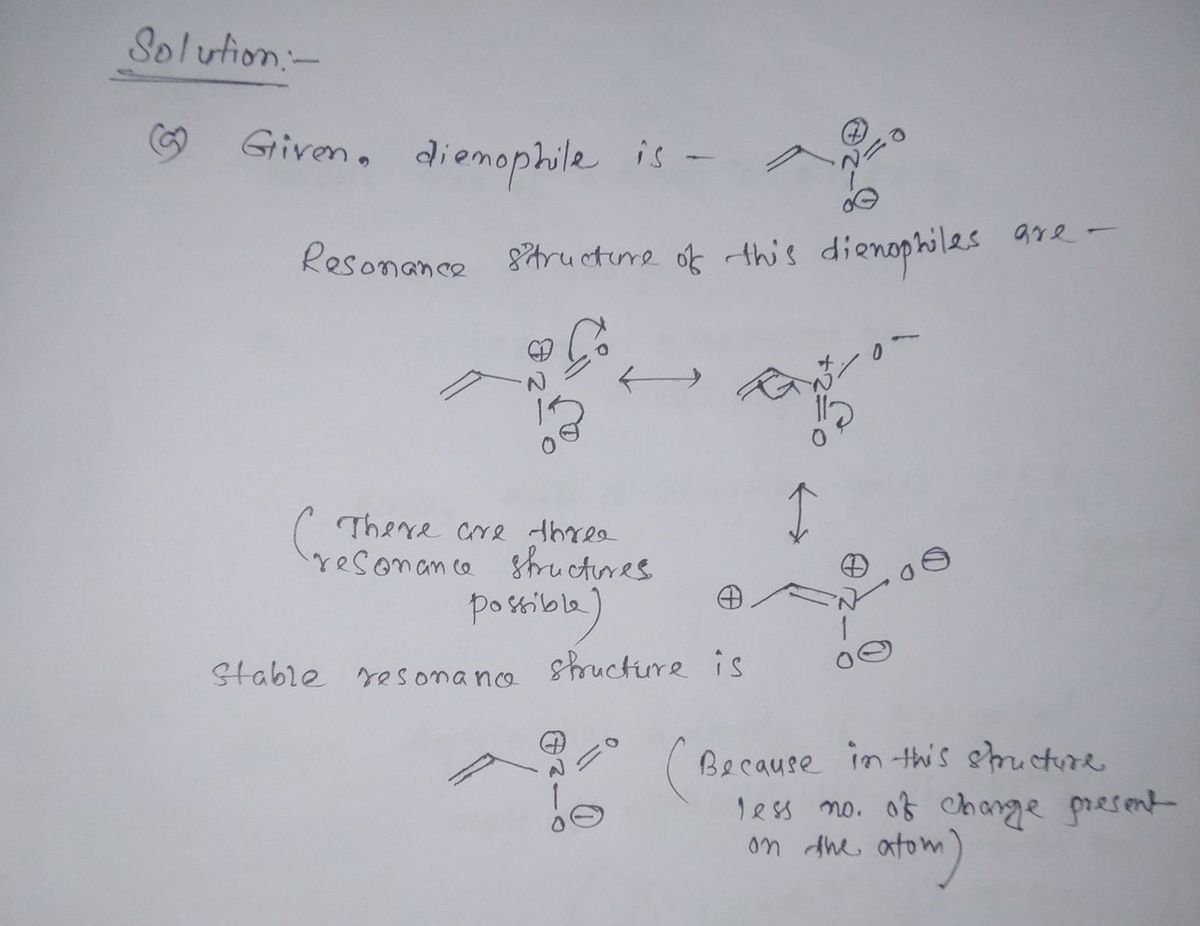 Solution:-
(a) Given, dienophile is -
⊕ O
N
O⊖
Resonance structure of this dienophiles are -
⊕ O
N
O⊖
+ O-
N
O
⊕ ⊕ O⊖
N
O⊖
(There are three
resonance structures
possible)
Stable resonance structure is
⊕ O
N
O⊖
(Because in this structure
less no. of charge present
on the atom)